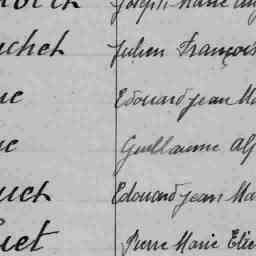 Joseph Marie
chet Julien François
Edouard Jean Ma
Guillaume Alf
uet Edouard Jean Ma
uet Pierre Marie Elie